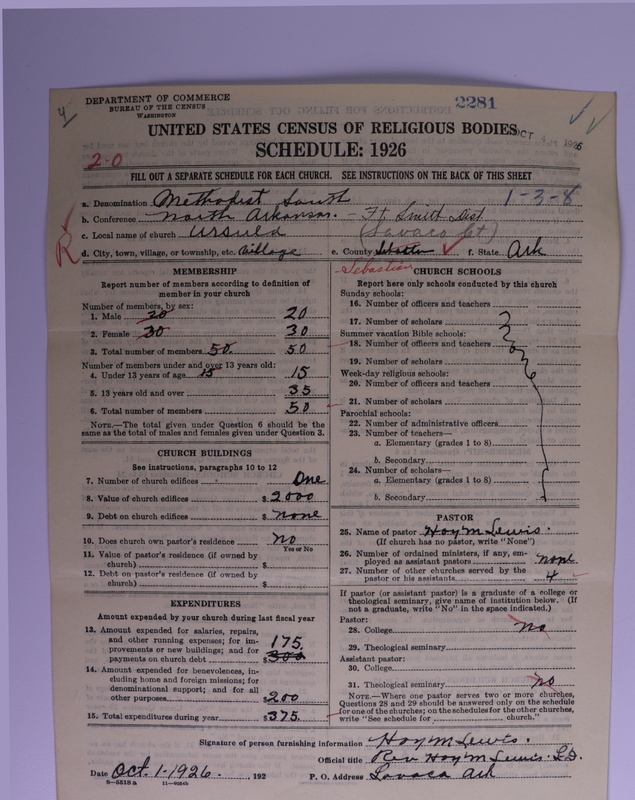 4
DEPARTMENT OF COMMERCE
BUREAU OF THE CENSUS
WASHINGTON
2281
OCT 1926
UNITED STATES CENSUS OF RELIGIOUS BODIES
SCHEDULE: 1926
2-0
FILL OUT A SEPARATE SCHEDULE FOR EACH CHURCH. SEE INSTRUCTIONS ON THE BACK OF THIS SHEET
a. Denomination Methodist South 1-3-8
b. Conference North Arkansas. - Ft. Smith Dist.
c. Local name of church Ursula (Lavaca Ct)
R
d. City, town, village, or township, etc. Village e. County f. State Ark
Sebastian
MEMBERSHIP
Report number of members according to definition of
member in your church
Number of members, by sex:
1. Male 20 20
2. Female 30 30
3. Total number of members 50. 50
Number of members under and over 13 years old:
4. Under 13 years of age 15 15
5. 13 years old and over 35
6. Total number of members 50
NOTE.—The total given under Question 6 should be the
same as the total of males and females given under Question 3.
CHURCH BUILDINGS
See instructions, paragraphs 10 to 12
7. Number of church edifices One
8. Value of church edifices $ 2000
9. Debt on church edifices $ none
10. Does church own pastor's residence No
Yes or No
11. Value of pastor's residence (if owned by
church) $
12. Debt on pastor's residence (if owned by
church) $
EXPENDITURES
Amount expended by your church during last fiscal year
13. Amount expended for salaries, repairs,
and other running expenses; for im-
provements or new buildings; and for
payments on church debt 175.
$ 300
14. Amount expended for benevolences, in-
cluding home and foreign missions; for
denominational support; and for all
other purposes $ 200
15. Total expenditures during year $ 375.
CHURCH SCHOOLS
Report here only schools conducted by this church
Sunday schools:
16. Number of officers and teachers
17. Number of scholars
Summer vacation Bible schools:
18. Number of officers and teachers
19. Number of scholars
None
Week-day religious schools:
20. Number of officers and teachers
21. Number of scholars
Parochial schools:
22. Number of administrative officers
23. Number of teachers—
a. Elementary (grades 1 to 8)
b. Secondary
24. Number of scholars—
a. Elementary (grades 1 to 8)
b. Secondary
PASTOR
25. Name of pastor Hoy M Lewis.
(If church has no pastor, write "None")
26. Number of ordained ministers, if any, em-
ployed as assistant pastors none
27. Number of other churches served by the
pastor or his assistants 4
If pastor (or assistant pastor) is a graduate of a college or
theological seminary, give name of institution below. (If
not a graduate, write "No" in the space indicated.)
Pastor:
28. College no
29. Theological seminary
Assistant pastor:
30. College
31. Theological seminary no
NOTE.—Where one pastor serves two or more churches,
Questions 28 and 29 should be answered only on the schedule
for one of the churches; on the schedules for the other churches,
write "See schedule for church."
Signature of person furnishing information Hoy M Lewis.
Official title Rev. Hoy M Lewis.
Date Oct. 1-1926. , 192 P. O. Address Lavaca Ark
8—5818 a 11—9084b